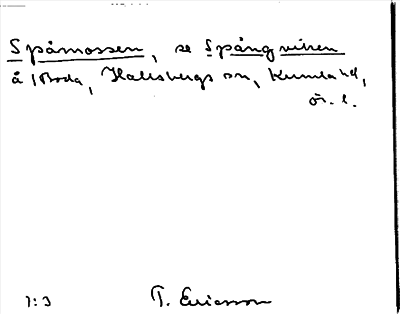 Spåmossen, se Spångmuren
å Boda, Hallsbergs sn, Kumla hd,
ör. l.
1:3 T. Ericsson